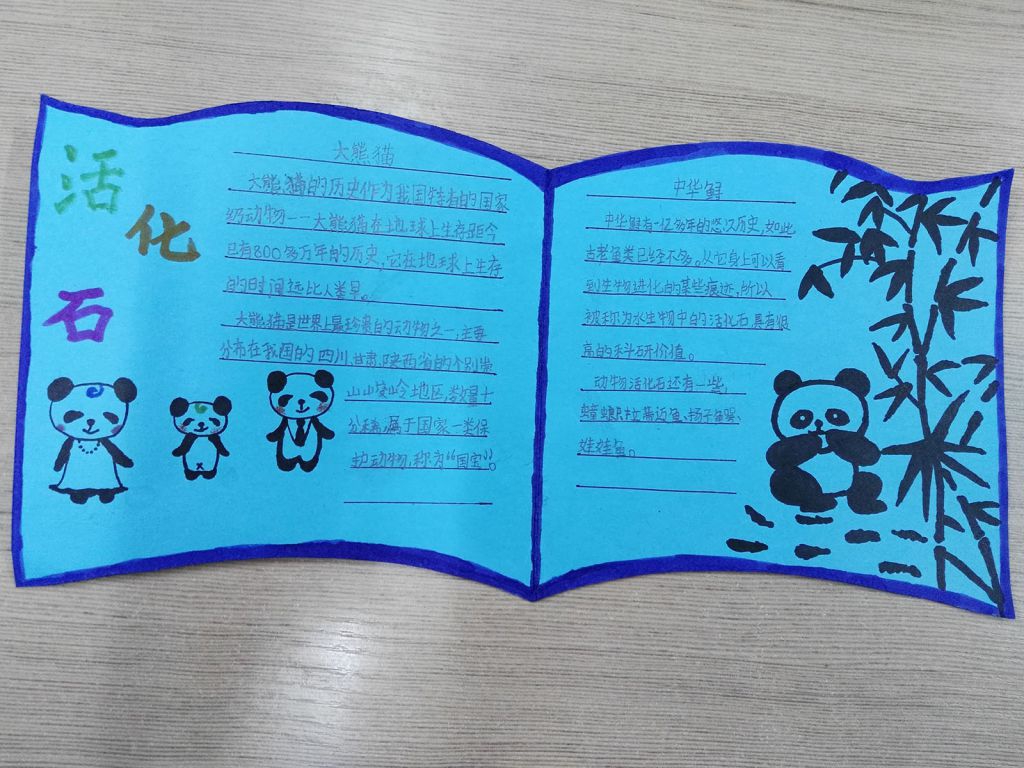 活
化
石
大熊猫
大熊猫的历史作为我国特有的国家
级动物——大熊猫在地球上生存距今
已有800多万年的历史,它在地球上生存
的时间远比人类早。
大熊猫是世界上最珍贵的动物之一,主要
分布在我国的四川,甘肃,陕西省的个别崇
山山岭地区,数量十
分稀,属于国家一类保
护动物,称为“国宝”。
中华鲟
中华鲟有一亿多年的悠久历史,如此
古老鱼类已经不多。从它身上可以看
到生物进化的某些痕迹,所以
被称为水生物中的活化石,具有很
高的科研价值。
动物活化石还有一些,
拉蒂迈鱼、扬子鳄、
娃娃鱼。